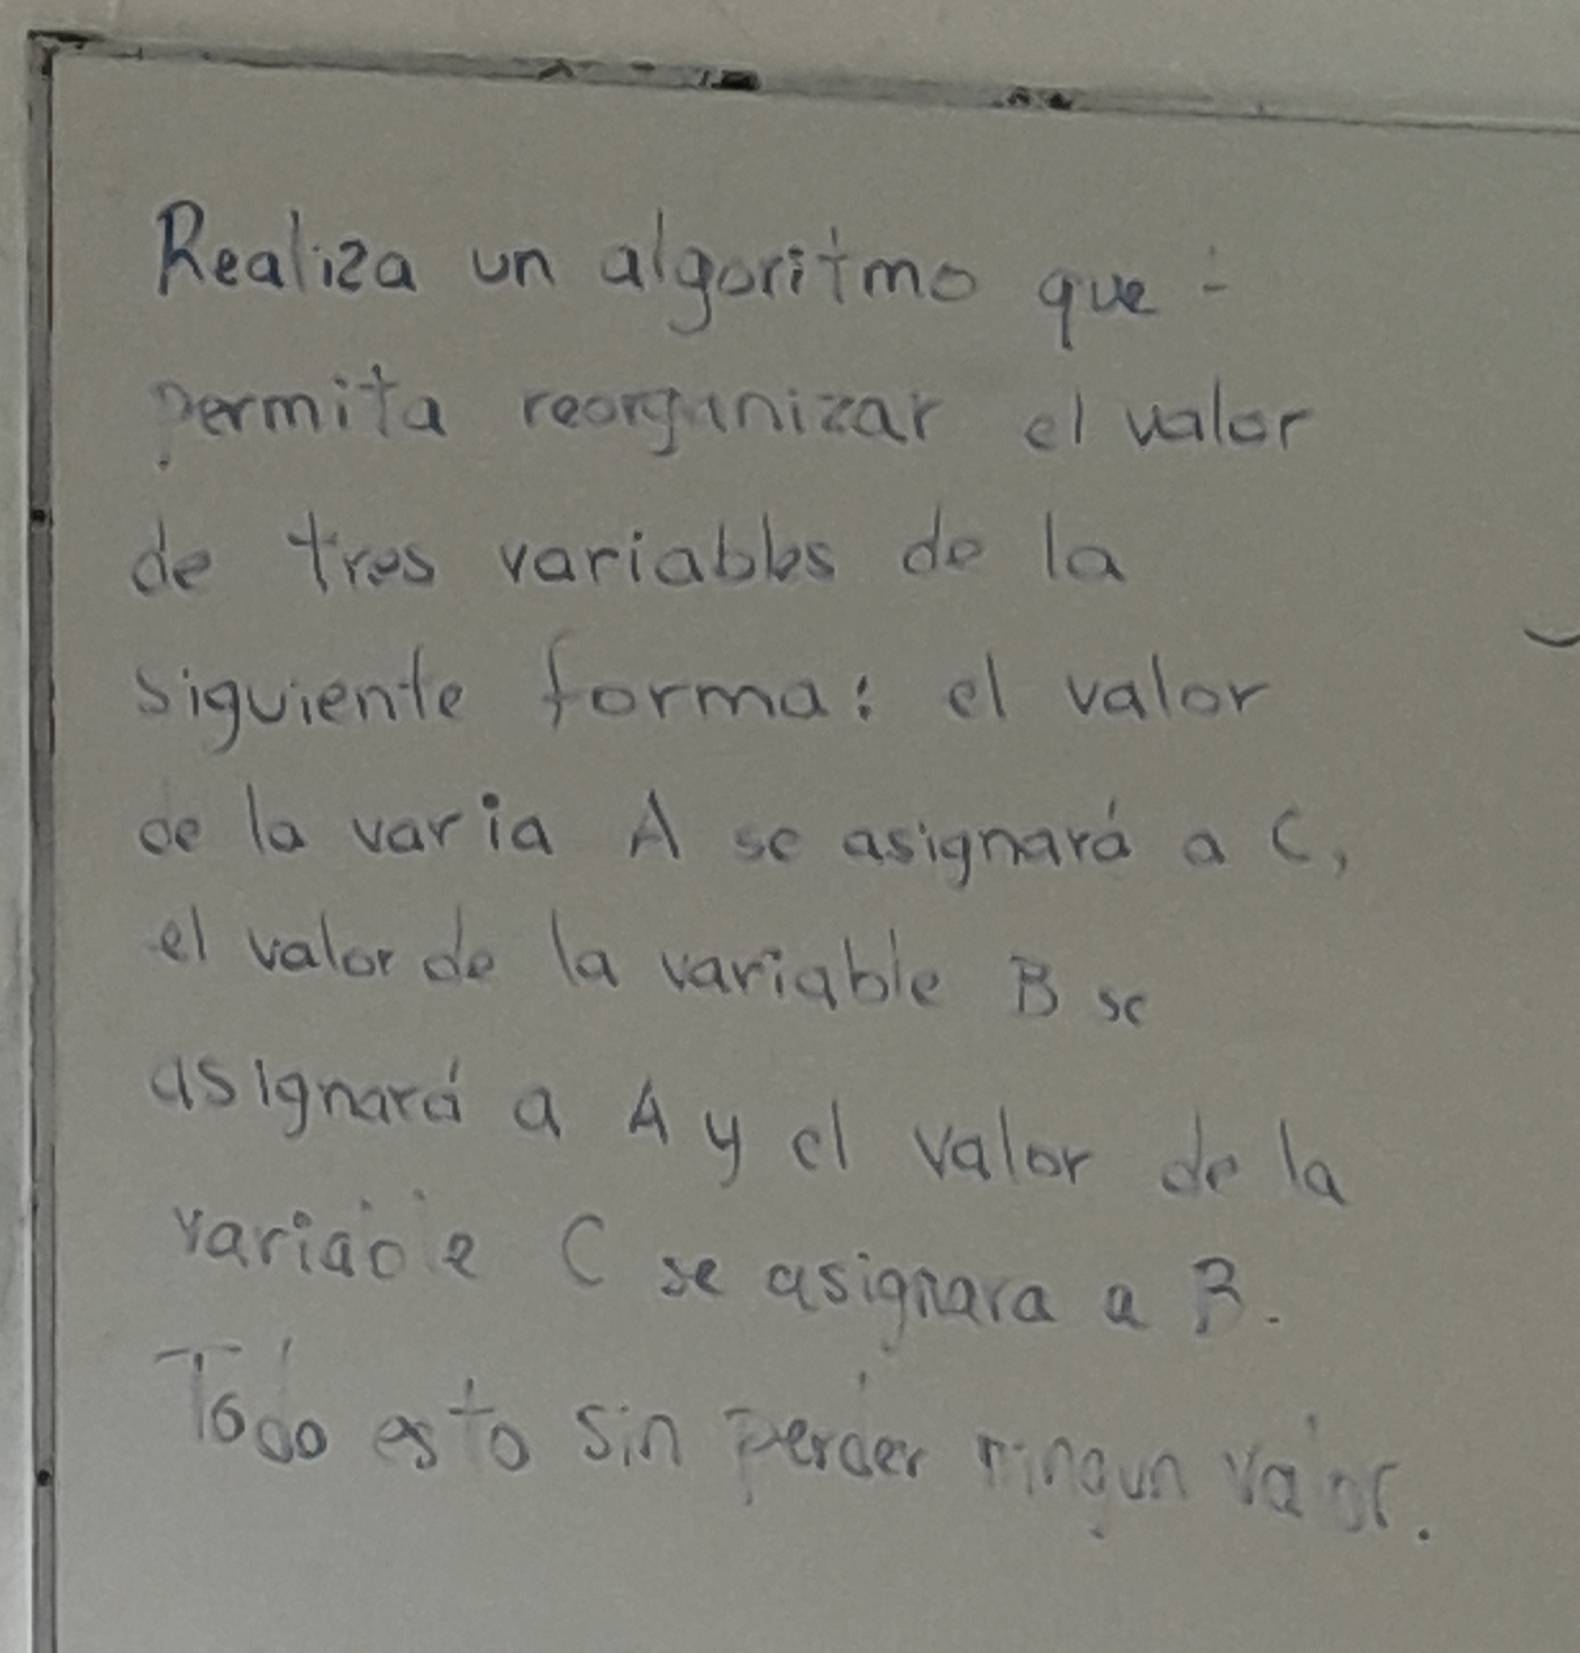 Realiza un algoritmo que
permita reorganizar el valor
de tres variables de la
siguiente forma: el valor
de la varia A se asignará a C,
el valor de la variable B se
asignará a A y el valor de la
variable C se asignara a B.
Todo esto sin perder ningun valor.